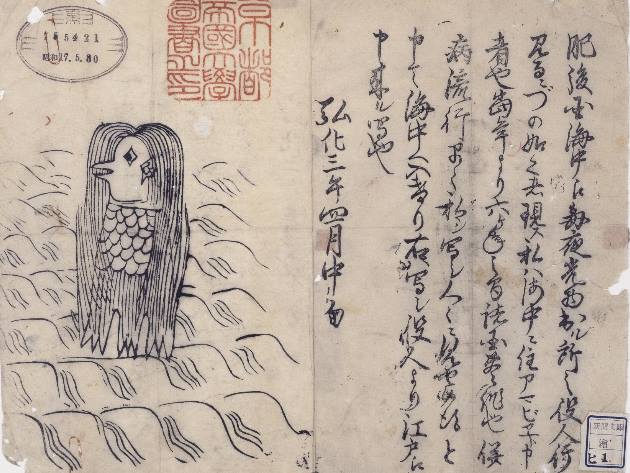 肥後国海中え毎夜光物出ル所之役人行
見るニづの如く者現ス私ハ海中ニ住アマビヱト申
者也當年より六ヶ年之間諸国豊作也併
病流行早々私ヲ写シ人々ニ見セ候得と
申て海中へ入けり右写シ役人より江戸え
申来ル写也
弘化三年四月中旬
京都
帝國大學
圖書之印
昭和17.5.30
新聞文庫
ヒ1